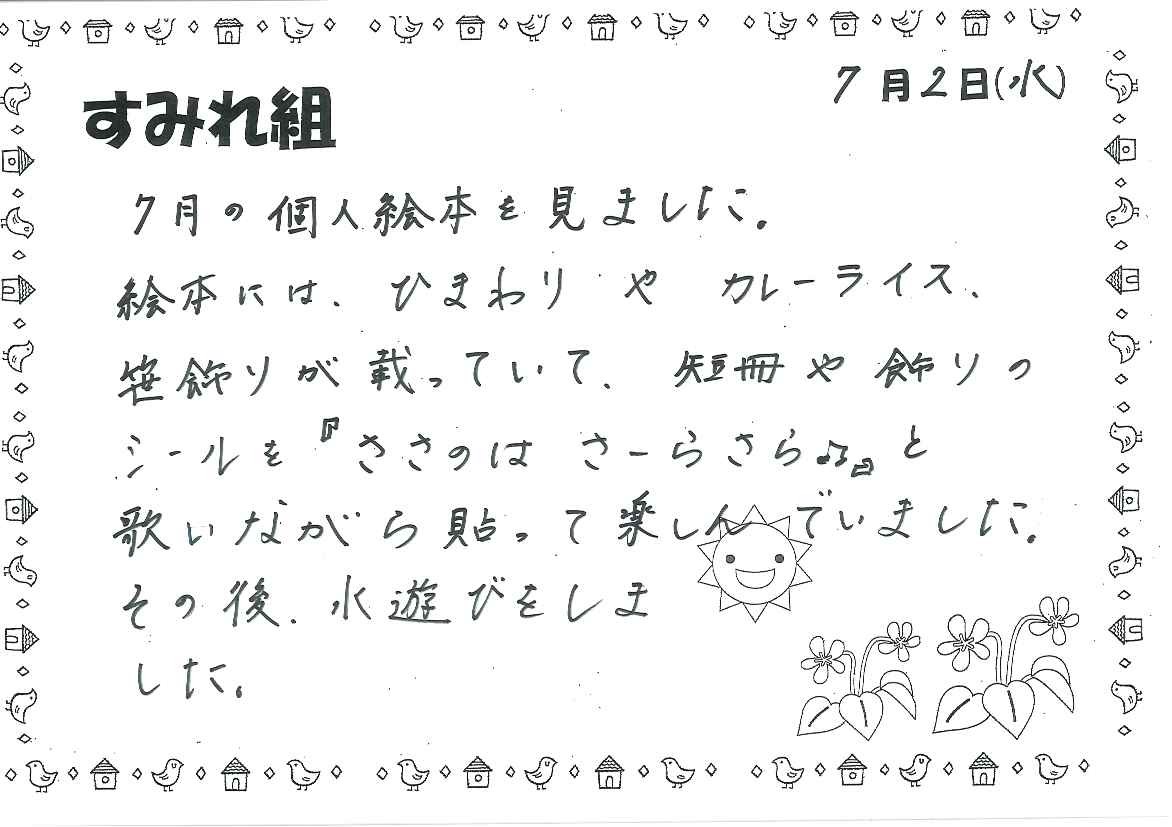 7月2日(水)
すみれ組
7月の個人絵本を見ました。
絵本には、ひまわりや カレーライス、
笹飾りが載っていて、短冊や飾りの
シールを『ささのは さーらさら♫』と
歌いながら貼って楽しんでいました。
その後、水遊びをしま
した。